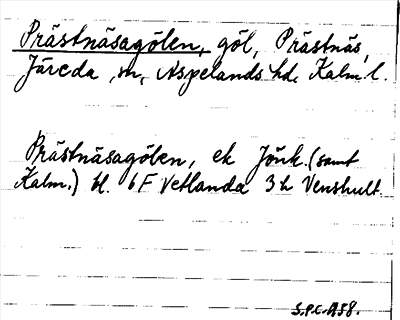 Prästnäsagölen, göl, Prästnäs,
Järeda sn, Aspelands hd, Kalm. l.
Prästnäsagölen, ek Jönk. (samt
Kalm.) bl. 6 F Vetlanda 3 h Venshult.
S.P.C. A58.